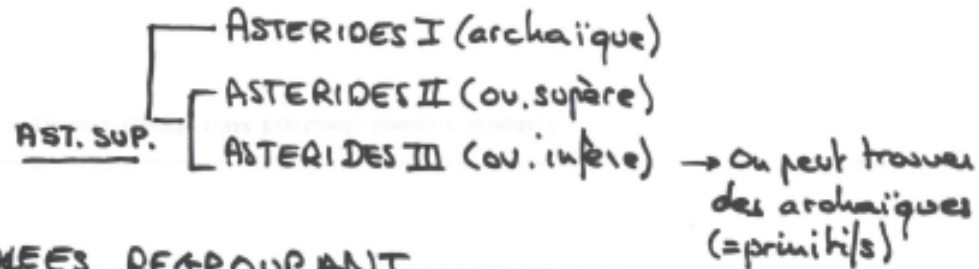 ASTERIDES I (archaïque)
ASTERIDES II (ov. supère)
AST. SUP.
ASTERIDES III (ov. infère) → On peut trouver
des archaïques
(=primitifs)
REGROUPANT